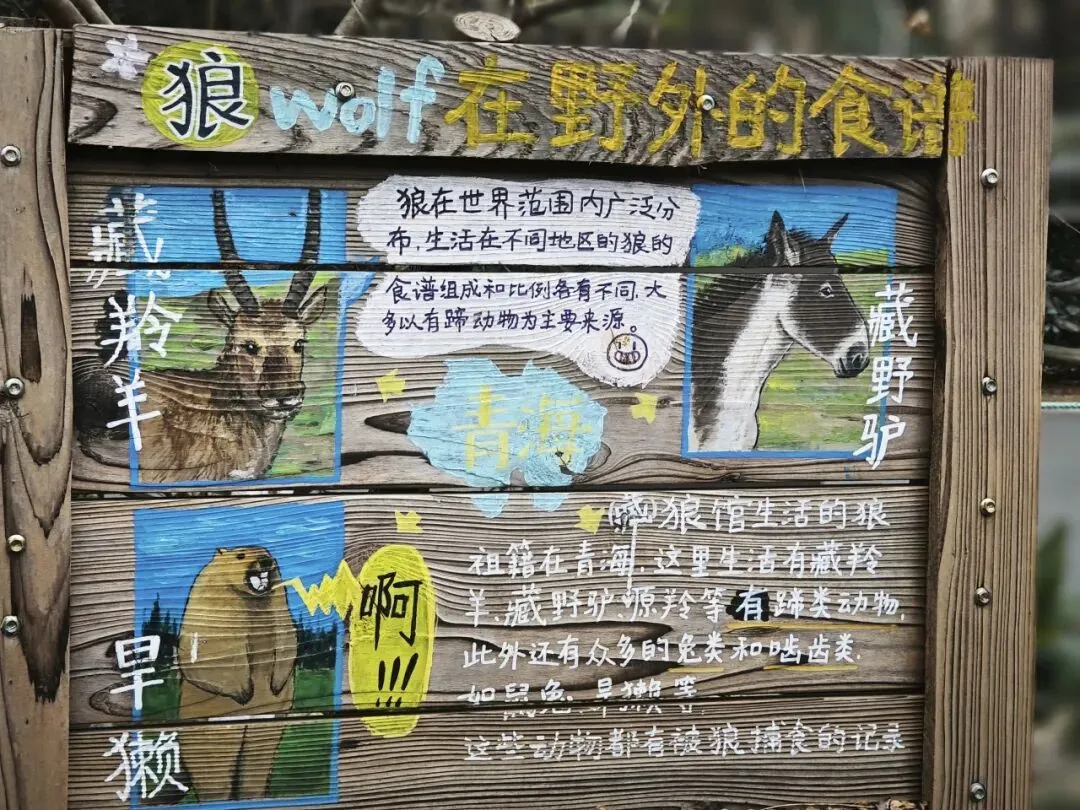 狼 wolf 在野外的食谱
藏羚羊
狼在世界范围内广泛分
布，生活在不同地区的狼的
食谱组成和比例各有不同，大
多以有蹄动物为主要来源。
藏野驴
青海
旱獭
啊!!!
狼馆生活的狼
祖籍在青海，这里生活有藏羚
羊、藏野驴、原羚等有蹄类动物，
此外还有众多的兔类和啮齿类，
如鼠兔、旱獭等，
这些动物都有被狼捕食的记录